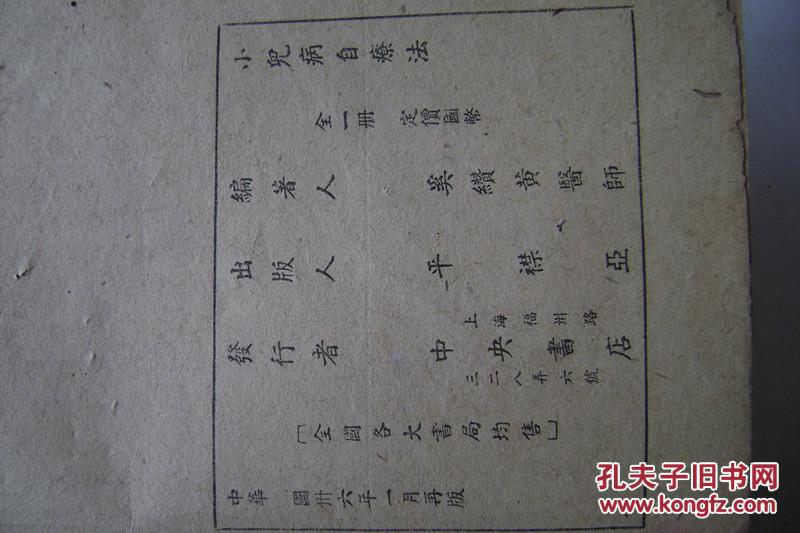 小兒病自療法
全一册 定價國幣
編著人 奚纘黃醫師
出版人 平襟亞
上海福州路
發行者 中央書店
三二八弄六號
［全國各大書局均售］
中華 國卅六年一月再版
孔夫子旧书网
www.kongfz.com